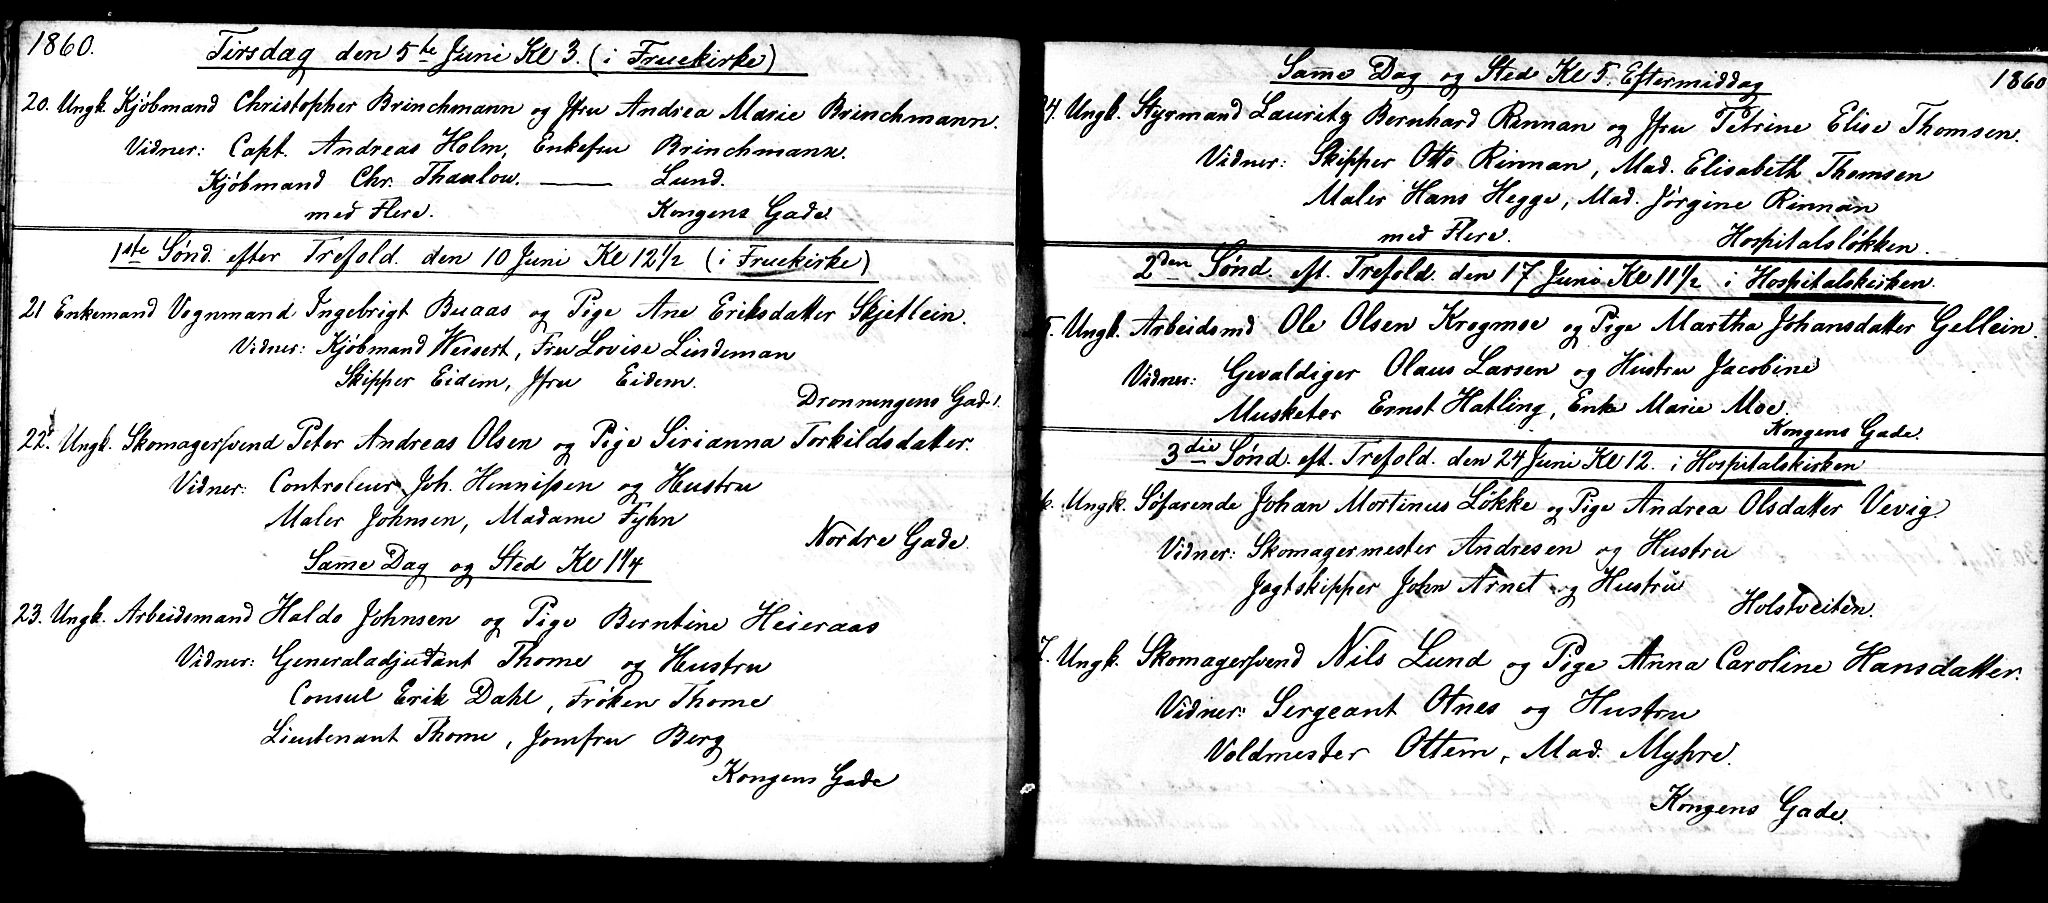 1860.
Tirsdag den 5te Juni Kl 3. (i Fruekirke)
20. Ungk. Kjöbmand Christopher Brinchmann og Jfru Andrea Marie Brinchmann.
Vidner: Capt. Andreas Holm, Enkefru Brinchmann.
Kjöbmand Chr. Thaulow. —— Lund.
med Flere. Kongens Gade.
1ste Sönd. efter Trefold. den 10 Juni Kl 12 1/2 (i Fruekirke)
21 Enkemand Vognmand Ingebrigt Buaas og Pige Ane Eriksdatter Skjetlein.
Vidner: Kjöbmand Weisert, Fru Lovise Lindeman
Skipper Eidem, Jfru Eidem.
Dronningens Gad.
22. Ungk. Skomagersvend Peter Andreas Olsen og Pige Sirianna Torkildsdatter.
Vidner: Controleur Joh. Hennissen og Hustru
Maler Johnsen, Madame Fyhn
Nordre Gade.
Samme Dag og Sted Kl 1 1/4
23. Ungk. Arbeidsmand Haldo Johnsen og Pige Berntine Heieraas
Vidner: Generaladjutant Thome og Hustru
Consul Erik Dahl, Fröken Thome
Lieutenant Thome, Jomfru Berg
Kongens Gade
Samme Dag og Sted Kl 5. Eftermiddag
1860
24. Ungk. Styrmand Lauritz Bernhard Rinnan og Jfru Petrine Elise Thomsen.
Vidner: Skipper Otto Rinnan, Mad. Elisabeth Thomsen
Maler Hans Hegge, Mad. Jörgine Rinnan
med Flere. Hospitalslökken.
2den Sönd. eft. Trefold. den 17 Juni Kl 11 1/2 i Hospitalskirken.
5. Ungk. Arbeidsmd Ole Olsen Krogmoe og Pige Martha Johansdatter Gellein.
Vidner: Gevaldiger Olaus Larsen og Hustru Jacobine
Musketer Ernst Hatling, Enke Marie Moe.
Kongens Gade.
3die Sönd. eft. Trefold. den 24 Juni Kl 12. i Hospitalskirken
Ungk. Söfarende Johan Mortinus Lökke og Pige Andrea Olsdatter Vevig.
Vidner: Skomagermester Andresen og Hustru
Jagtskipper John Arnet og Hustru
Holstveiten.
7. Ungk. Skomagersvend Nils Lund og Pige Anna Caroline Hansdatter.
Vidner: Sergeant Otnes og Hustru
Voldmester Ottem, Mad. Myhre.
Kongens Gade.